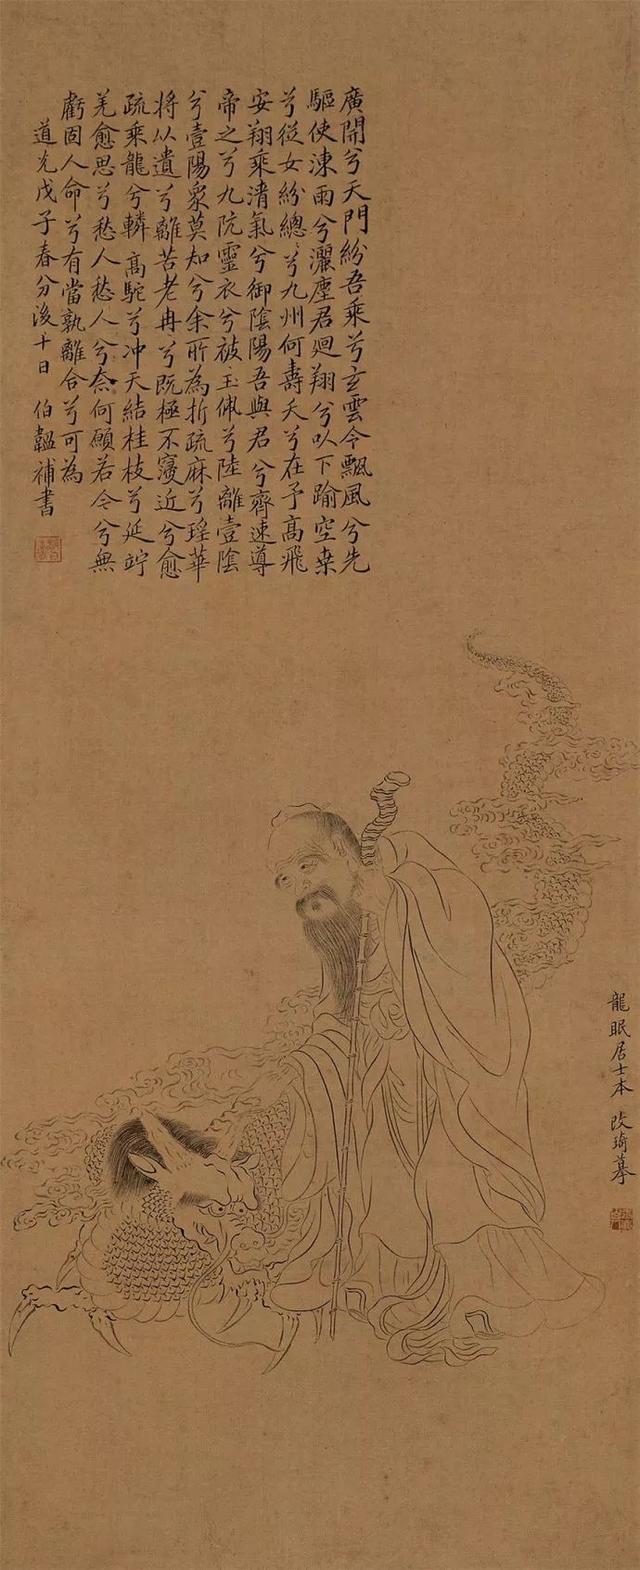 廣開兮天門紛吾乘兮玄雲今飄風兮先
驅使涷雨兮灑塵君迴翔兮㠯下踰空桒
兮從女紛總々兮九州何壽夭兮在予高飛
安翔乘清氣兮御陰陽吾與君兮齊速導
帝之兮九阬靈衣兮被玉佩兮陸離壹陰
兮壹陽衆莫知兮余所為折疏麻兮瑤華
將以遺兮離苦老冉兮既極不寖近兮愈
疏乘龍兮轔高駝兮冲天結桂枝兮延竚
羌愈思兮愁人愁人兮奈何願若今兮無
虧固人命兮有當孰離合兮可為
道光戊子春分後十日 伯韞補書
龍眠居士本 改琦摹